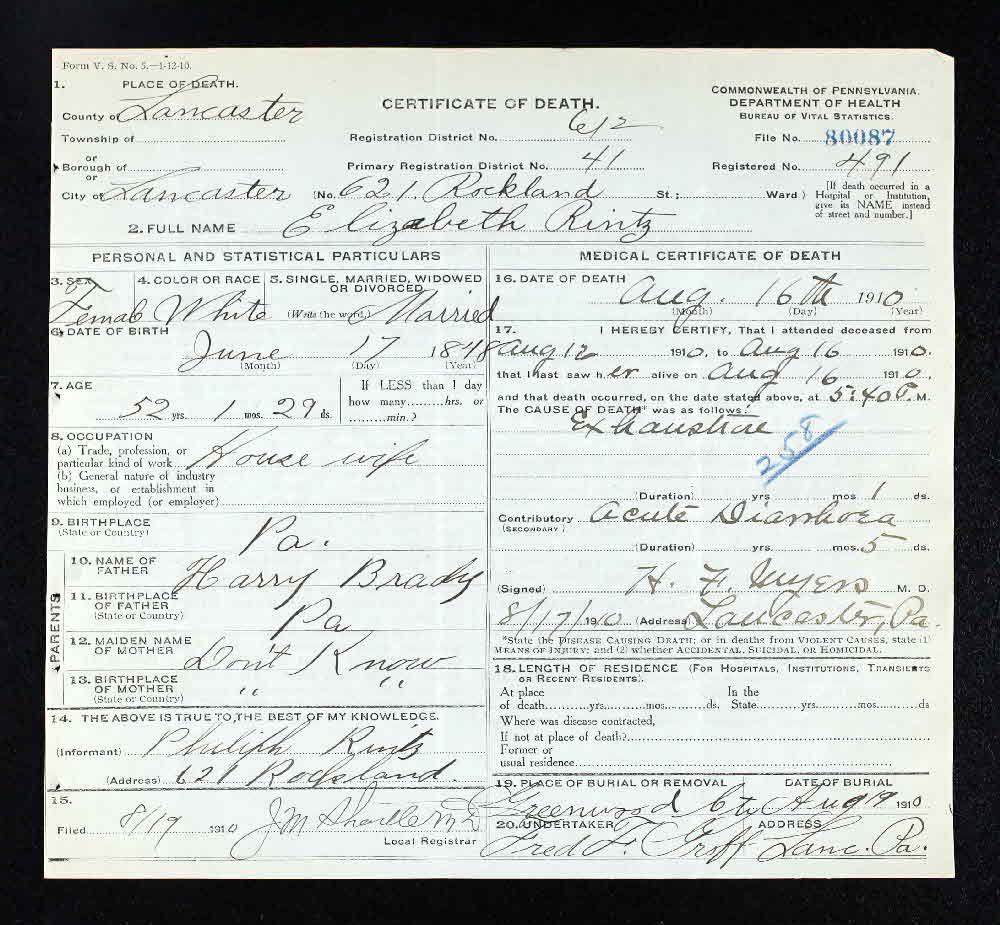 Form V. S. No. 5.—1-12-10.
1. PLACE OF DEATH.
County of Lancaster
Township of
or
Borough of
or
City of Lancaster (No. 621. Rockland St.; Ward)
CERTIFICATE OF DEATH.
Registration District No. 612
Primary Registration District No. 41
COMMONWEALTH OF PENNSYLVANIA.
DEPARTMENT OF HEALTH
BUREAU OF VITAL STATISTICS.
File No. 80087
Registered No. 491
[If death occurred in a
Hospital or Institution,
give its NAME instead
of street and number.]
2. FULL NAME Elizabeth Rintz
PERSONAL AND STATISTICAL PARTICULARS
3. SEX
Female
4. COLOR OR RACE
White
5. SINGLE, MARRIED, WIDOWED
OR DIVORCED
(Write the word) Married
6. DATE OF BIRTH
June 17 1848
(Month) (Day) (Year)
7. AGE
52 yrs. 1 mos. 29 ds.
If LESS than 1 day
how many hrs. or
min.?
8. OCCUPATION
(a) Trade, profession, or
particular kind of work House wife
(b) General nature of industry
business, or establishment in
which employed (or employer)
9. BIRTHPLACE
(State or Country)
Pa.
PARENTS
10. NAME OF
FATHER
Harry Brady
11. BIRTHPLACE
OF FATHER
(State or Country)
Pa
12. MAIDEN NAME
OF MOTHER
Don't Know
13. BIRTHPLACE
OF MOTHER
(State or Country)
" "
14. THE ABOVE IS TRUE TO THE BEST OF MY KNOWLEDGE.
(Informant) Philiph Rintz
(Address) 621 Rockland.
15.
Filed 8/19 1910 J M
Local Registrar
MEDICAL CERTIFICATE OF DEATH
16. DATE OF DEATH
Aug. 16th 1910
(Month) (Day) (Year)
17. I HEREBY CERTIFY, That I attended deceased from
Aug 12 1910, to Aug 16 1910.
that I last saw h er alive on Aug 16 1910,
and that death occurred, on the date stated above, at 5:40 P. M.
The CAUSE OF DEATH* was as follows:
Exhaustion
258
(Duration) yrs mos 1 ds.
Contributory Acute Diarrhoea
(SECONDARY)
(Duration) yrs. mos. 5 ds.
(Signed) H. F. Myers M. D.
8/17/1910 (Address) Lancaster, Pa.
*State the DISEASE CAUSING DEATH; or in deaths from VIOLENT CAUSES, state (1)
MEANS OF INJURY; and (2) whether ACCIDENTAL, SUICIDAL, OR HOMICIDAL.
18. LENGTH OF RESIDENCE (FOR HOSPITALS, INSTITUTIONS, TRANSIENTS
OR RECENT RESIDENTS).
At place In the
of death yrs. mos. ds. State yrs. mos. ds
Where was disease contracted,
If not at place of death?
Former or
usual residence
19. PLACE OF BURIAL OR REMOVAL DATE OF BURIAL
Greenwood Aug 19 1910
20. UNDERTAKER ADDRESS
Fred F. Groff Lanc. Pa.